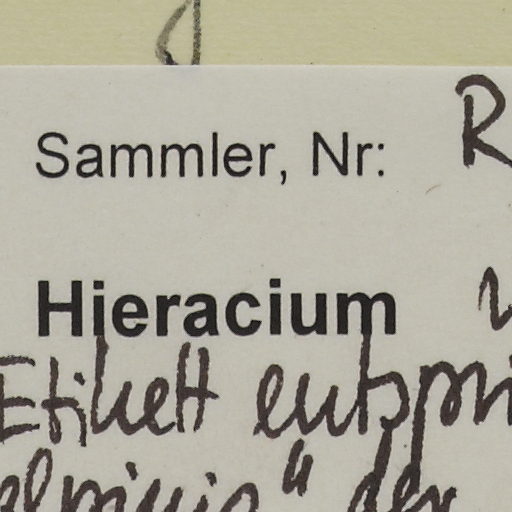 Sammler, Nr: R
Hieracium
Etikett entspri
alpinis“ der